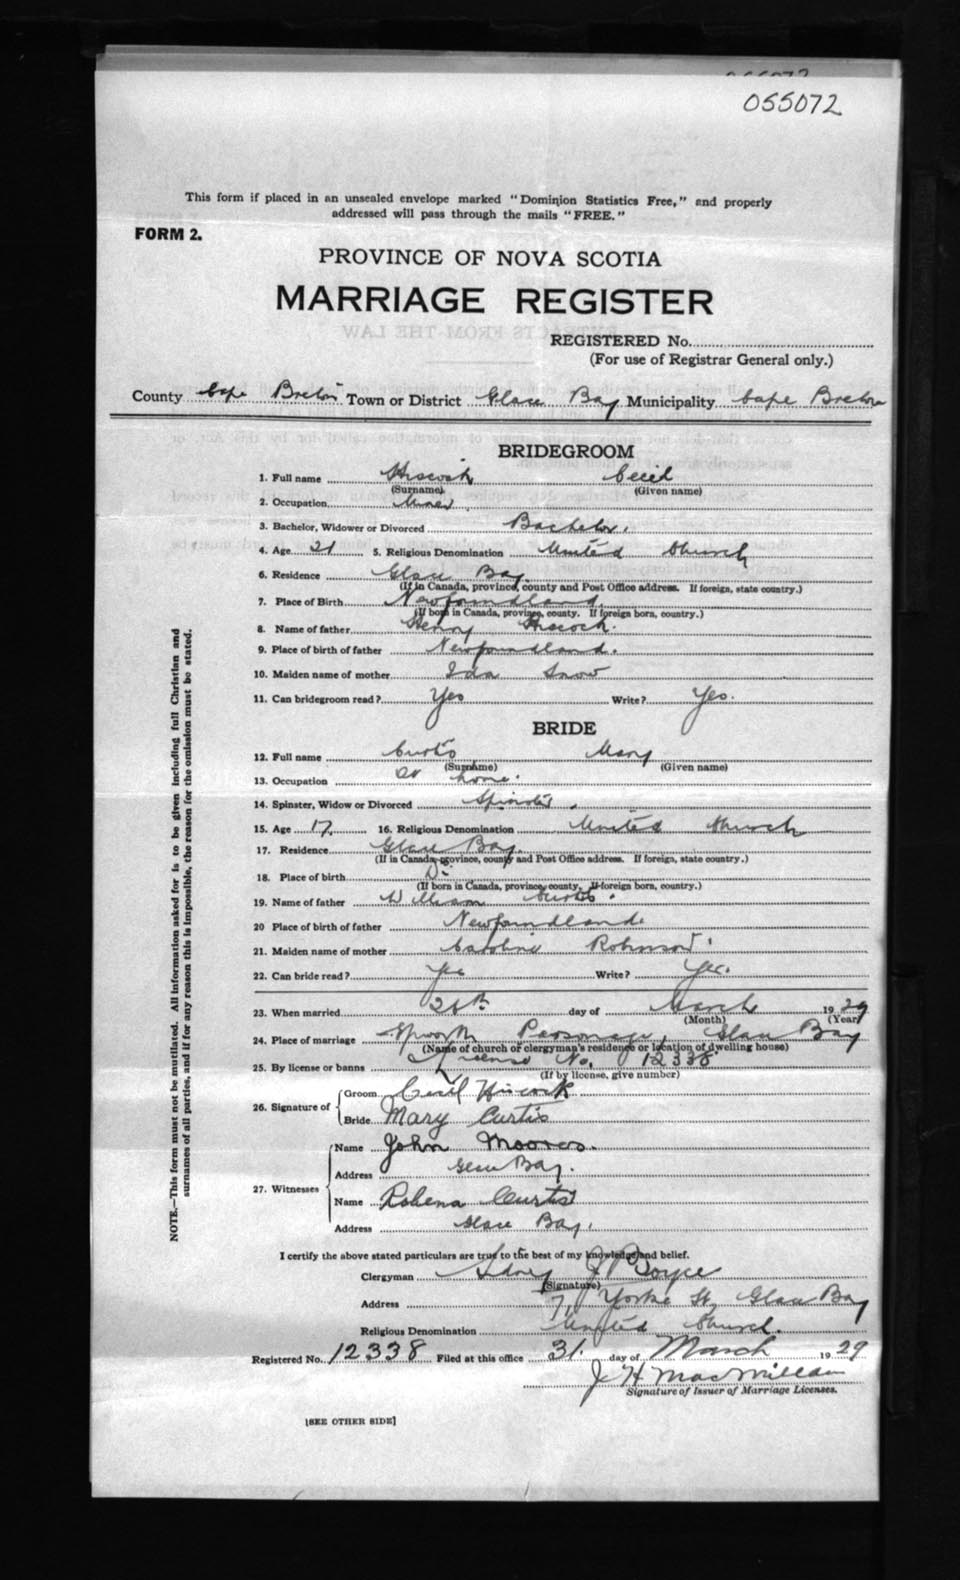 055072
This form if placed in an unsealed envelope marked "Dominion Statistics Free," and properly
addressed will pass through the mails "FREE."
FORM 2.
PROVINCE OF NOVA SCOTIA
MARRIAGE REGISTER
REGISTERED No.
(For use of Registrar General only.)
County Cape Breton Town or District Glace Bay Municipality Cape Breton
BRIDEGROOM
1. Full name Hiscock Cecil
(Surname) (Given name)
2. Occupation Miner
3. Bachelor, Widower or Divorced Bachelor.
4. Age 21 5. Religious Denomination United Church
6. Residence Glace Bay
(If in Canada, province, county and Post Office address. If foreign, state country.)
7. Place of Birth Newfoundland
(If born in Canada, province, county. If foreign born, country.)
8. Name of father Henry Hiscock.
9. Place of birth of father Newfoundland.
10. Maiden name of mother Ida Snow
11. Can bridegroom read? Yes Write? Yes.
BRIDE
12. Full name Curtis Mary
(Surname) (Given name)
13. Occupation At home.
14. Spinster, Widow or Divorced Spinster.
15. Age 17 16. Religious Denomination United Church
17. Residence Glace Bay.
(If in Canada, province, county and Post Office address. If foreign, state country.)
18. Place of birth Do
(If born in Canada, province, county. If foreign born, country.)
19. Name of father William Curtis.
20 Place of birth of father Newfoundland
21. Maiden name of mother Caroline Robinson.
22. Can bride read? Yes Write? Yes.
23. When married 28th day of March 1929
(Month) (Year)
24. Place of marriage Epworth Parsonage, Glace Bay
(Name of church or clergyman's residence or location of dwelling house)
25. By license or banns License No. 12338
(If by license, give number)
26. Signature of Groom Cecil Hiscock
Bride Mary Curtis
27. Witnesses Name John Moores.
Address Glace Bay.
Name Rohena Curtis
Address Glace Bay.
I certify the above stated particulars are true to the best of my knowledge and belief.
Clergyman Sidney J Boyce
(Signature)
Address 71 Yorke St, Glace Bay
Religious Denomination United Church.
Registered No. 12338 Filed at this office 31 day of March 1929
J H MacMillan
Signature of Issuer of Marriage Licenses.
[SEE OTHER SIDE]
NOTE.—This form must not be mutilated. All information asked for is to be given including full Christian and
surnames of all parties, and if for any reason this is impossible, the reason for the omission must be stated.